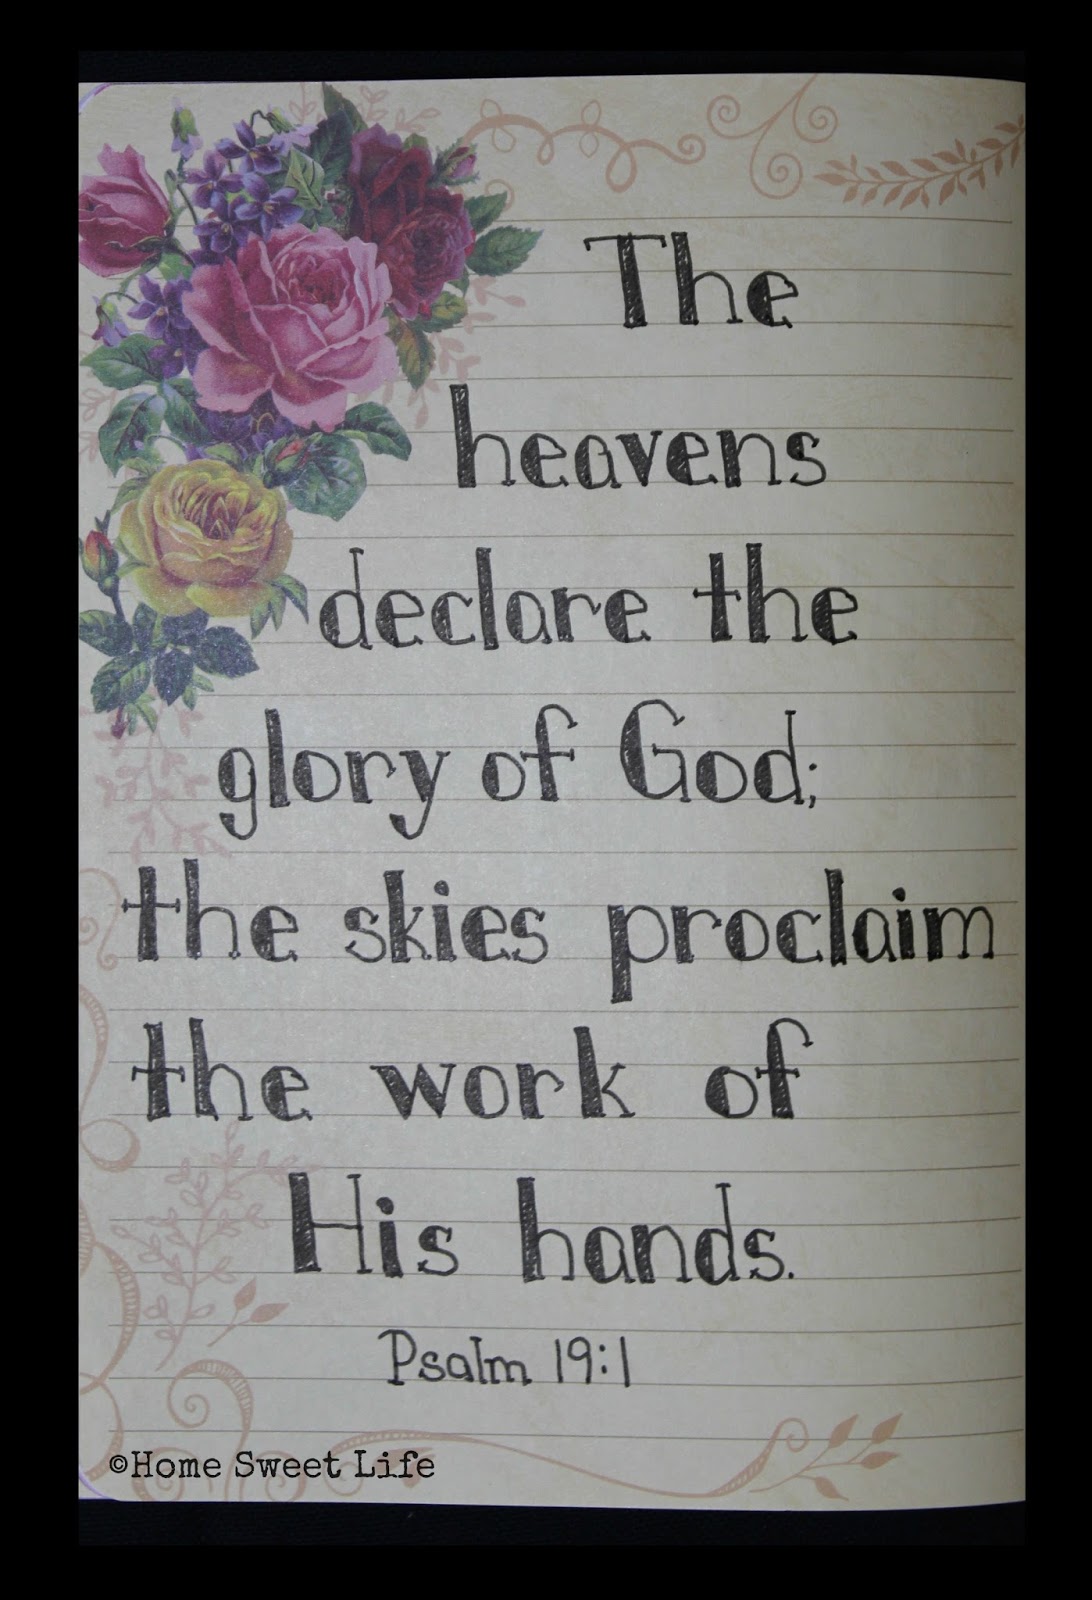 The
heavens
declare the
glory of God;
the skies proclaim
the work of
His hands.
Psalm 19:1
©Home Sweet Life